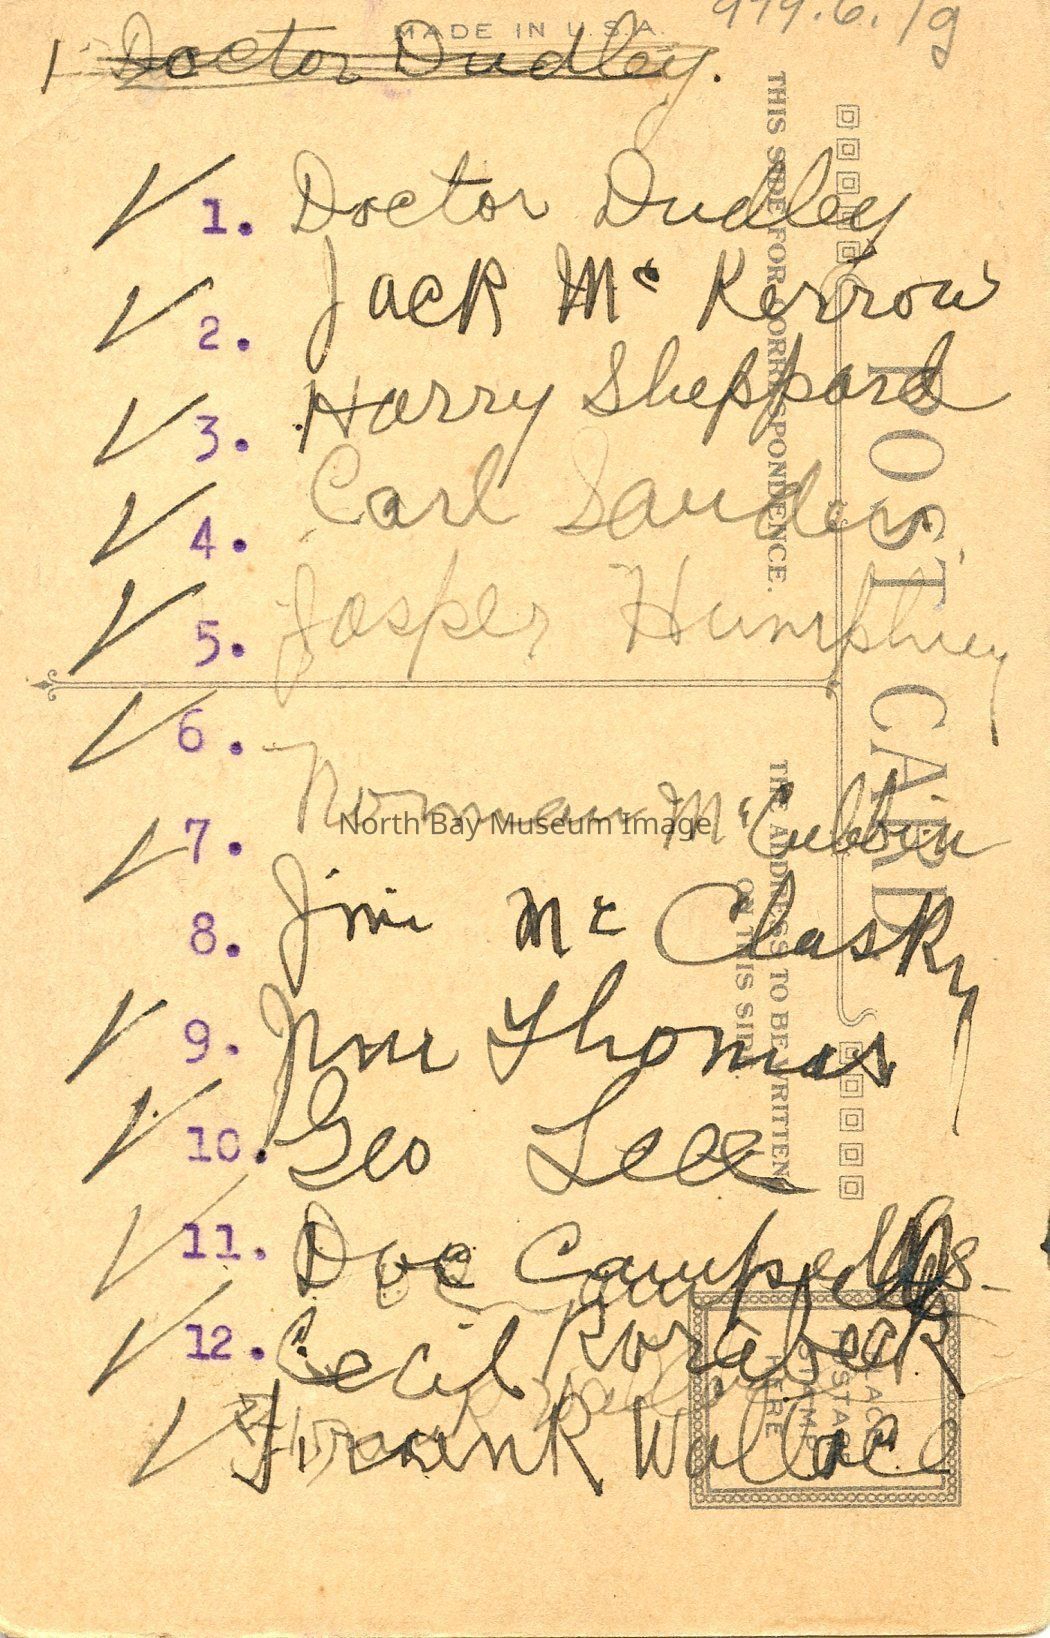 MADE IN U.S.A.
979.6.19
1 Doctor Dudley.
1. Doctor Dudley
2. Jack Mc Kerrow
3. Harry Sheppard
4. Carl Sanders
5. Jasper Humphrey
6.
Norman McCubbin
7.
8. Jim Mc Clasky
9. Jim Thomas
10. Geo Lee
11. Doc Campbell
12. Cecil Rorabeck
Frank Wallace
THIS SIDE FOR CORRESPONDENCE.
POST CARD
THE ADDRESS TO BE WRITTEN
ON THIS SIDE
PLACE
POSTAGE
STAMP
HERE
North Bay Museum Image